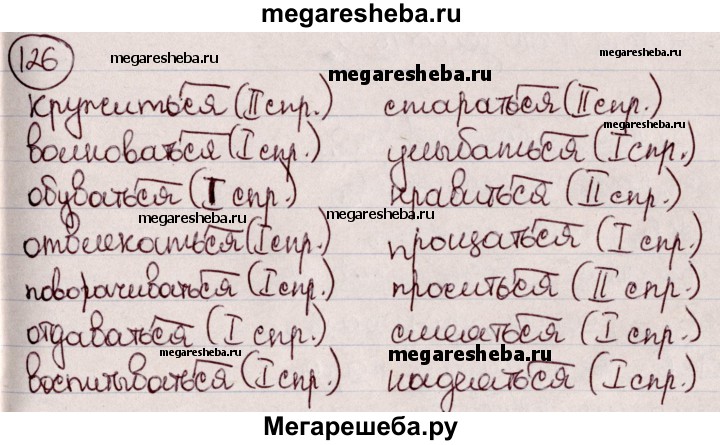 megaresheba.ru
126 megaresheba.ru megaresheba.ru
megaresheba.ru
кружиться (II спр.) стараться (II спр.)
megaresheba.ru
волноваться (I спр.) улыбаться (I спр.)
обуваться (I спр.) нравиться (II спр.)
megaresheba.ru megaresheba.ru
отвлекаться (I спр.) прощаться (I спр.)
поворачиваться (I спр.) проситься (II спр.)
отдаваться (I спр.) смеяться (I спр.)
megaresheba.ru megaresheba.ru
воспитываться (I спр.) надеяться (I спр.)
Мегарешеба.ру